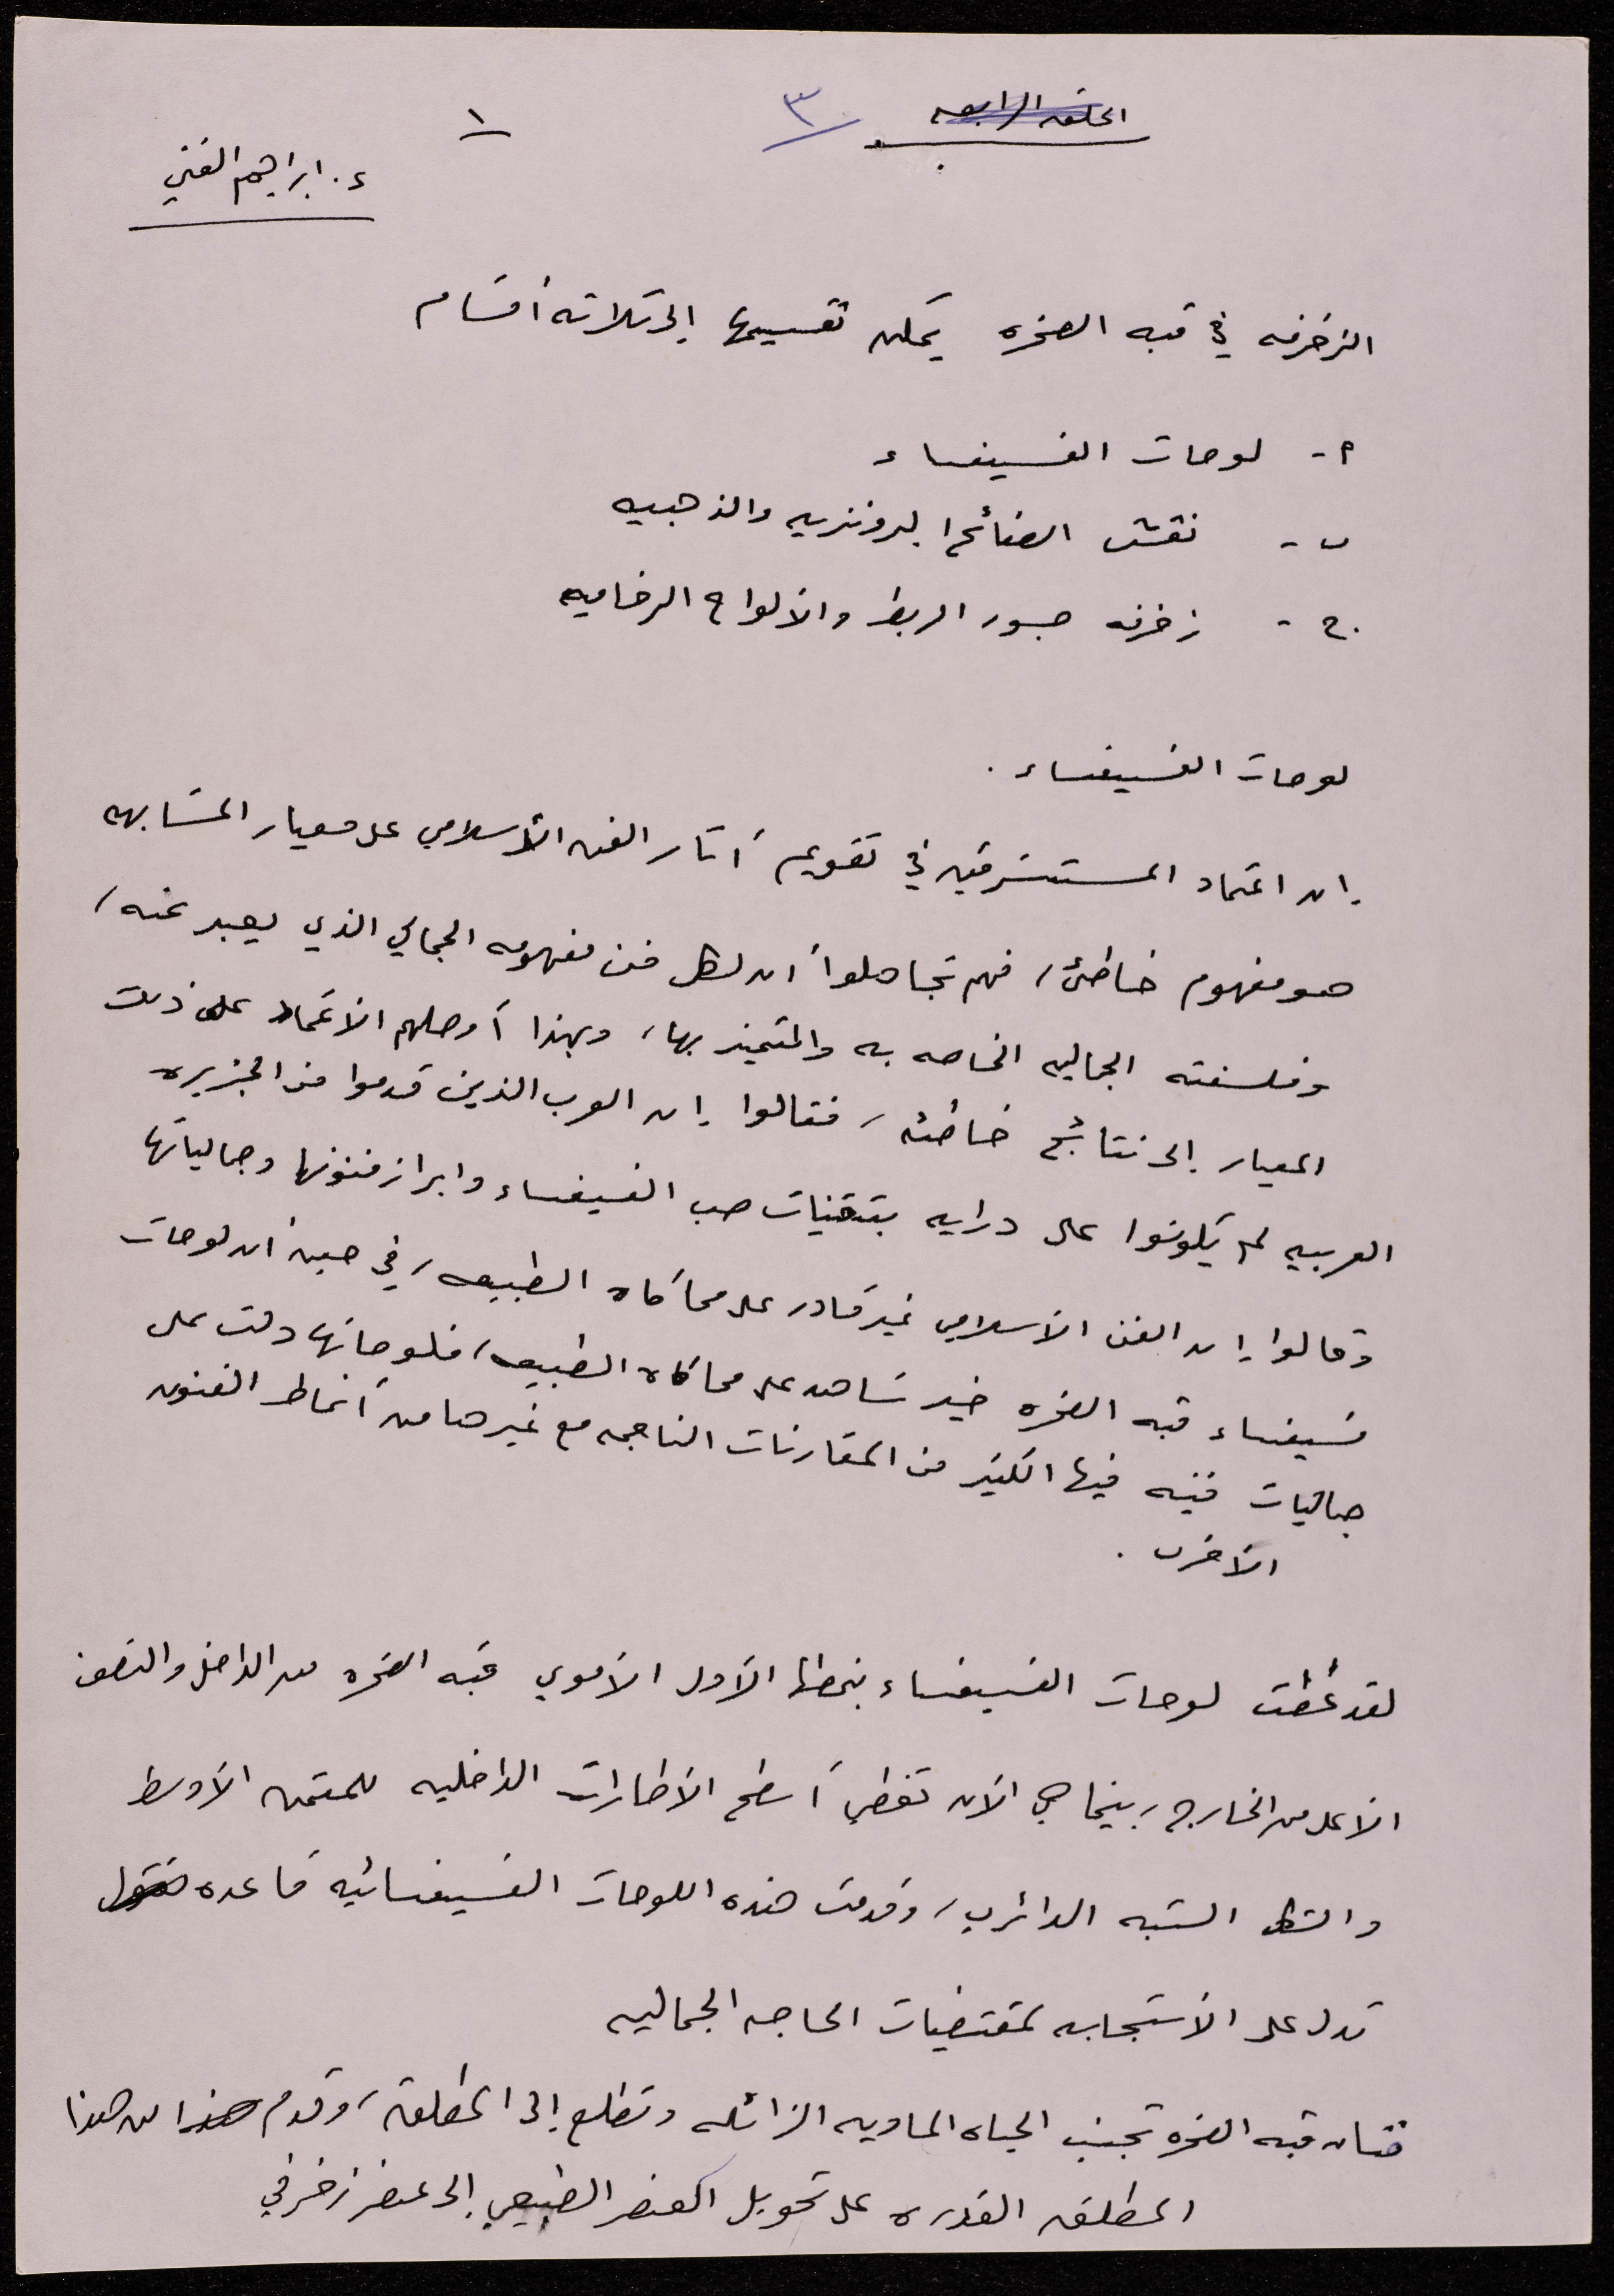 الحلقه الرابعه
٣
١
د. ابراهيم الفني
الزخرفه في قبه الصخره يمكن تقسيمها إلى ثلاثه أقسام
أ - لوحات الفسيفساء
ب - نقش الصفائح البرونزيه والذهبيه
ج - زخرفه جسور الربط والألواح الرخاميه
لوحات الفسيفساء .
إن اعتماد المستشرقين في تقويم أثار الفن الأسلامي على معيار المشابهه
هو مفهوم خاطئ، فهم تجاهلوا أن لكل فن مفهومه الجمالي الذي يعبر عنه،
وفلسفته الجماليه الخاصه به والمتميز بها، وبهذا أوصلهم الأعتماد على ذلك
المعيار إلى نتائج خاطئه، فقالوا إن العرب الذين قدموا من الجزيره
العربيه لم يكونوا على درايه بتقنيات صب الفسيفساء وابراز فنونها وجمالياتها
وقالوا إن الفن الأسلامي غير قادر على محاكاه الطبيعه، في حين أن لوحات
فسيفساء قبه الصخره خير شاهد على محاكاه الطبيعه، فلوحاتها دلت على
جماليات فنيه فيها الكثير من المقارنات الناجحه مع غيرها من أنماط الفنون
الأخرى .
لقد غطت لوحات الفسيفساء بنمطها الأول الأموي قبه الصخره من الداخل والنصف
الأعلى من الخارج، بينما هي الآن تغطي أسطح الأطارات الداخليه للمثمن الأوسط
والشكل الشبه الدائري، وقدمت هذه اللوحات الفسيفسائيه قاعده
تدل على الأستجابه لمقتضيات الحاجه الجماليه
فنان قبه الصخره تجنب الحياه الماديه الزائله وتطلع إلى المطلقه، وقدم هذا من هذا
المطلق القدره على تحويل العنصر الطبيعي إلى عنصر زخرفي